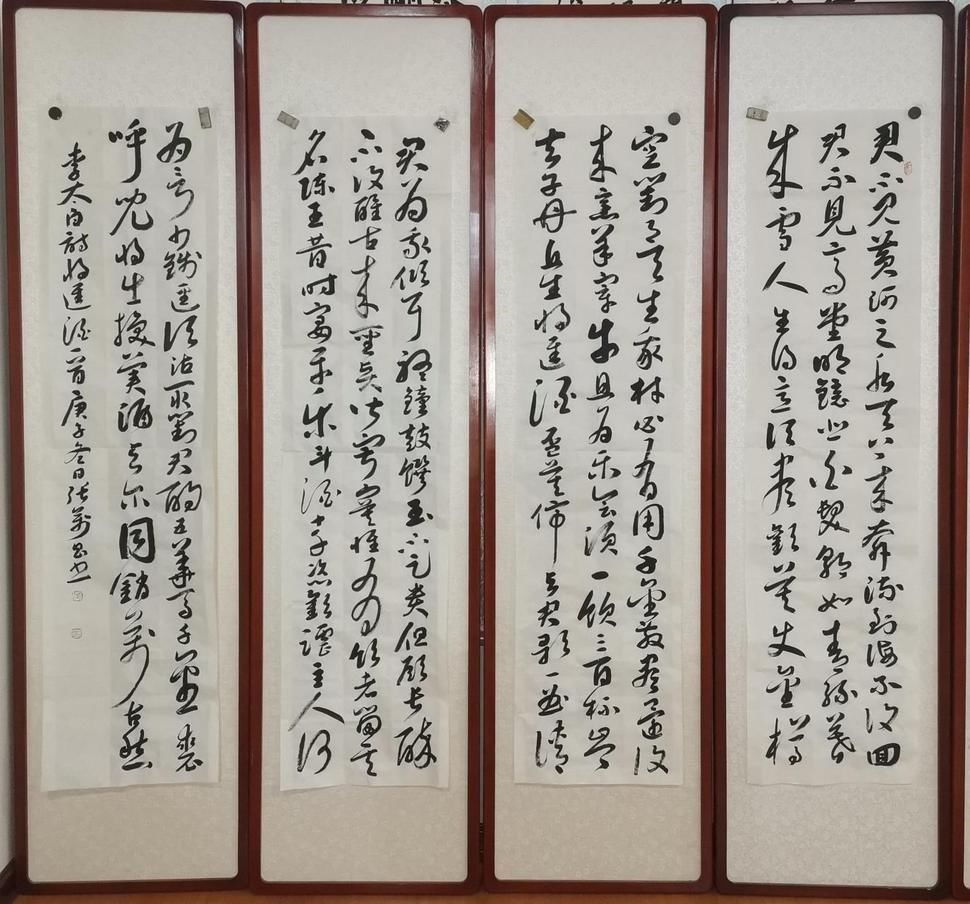 君不見黃河之水天上來奔流到海不復回
君不見高堂明鏡悲白髮朝如青絲暮
成雪人生得意須盡歡莫使金樽
空對月天生我材必有用千金散盡還復
來烹羊宰牛且為樂會須一飲三百杯岑
夫子丹丘生將進酒杯莫停與君歌一曲請
君為我傾耳聽鐘鼓饌玉不足貴但願長醉
不復醒古來聖賢皆寂寞惟有飲者留其
名陳王昔時宴平樂斗酒十千恣歡謔主人何
為言少錢逕須沽取對君酌五華馬千金裘
呼兒將出換美酒與爾同銷萬古愁
李太白詩將進酒一首庚子冬日張萬書